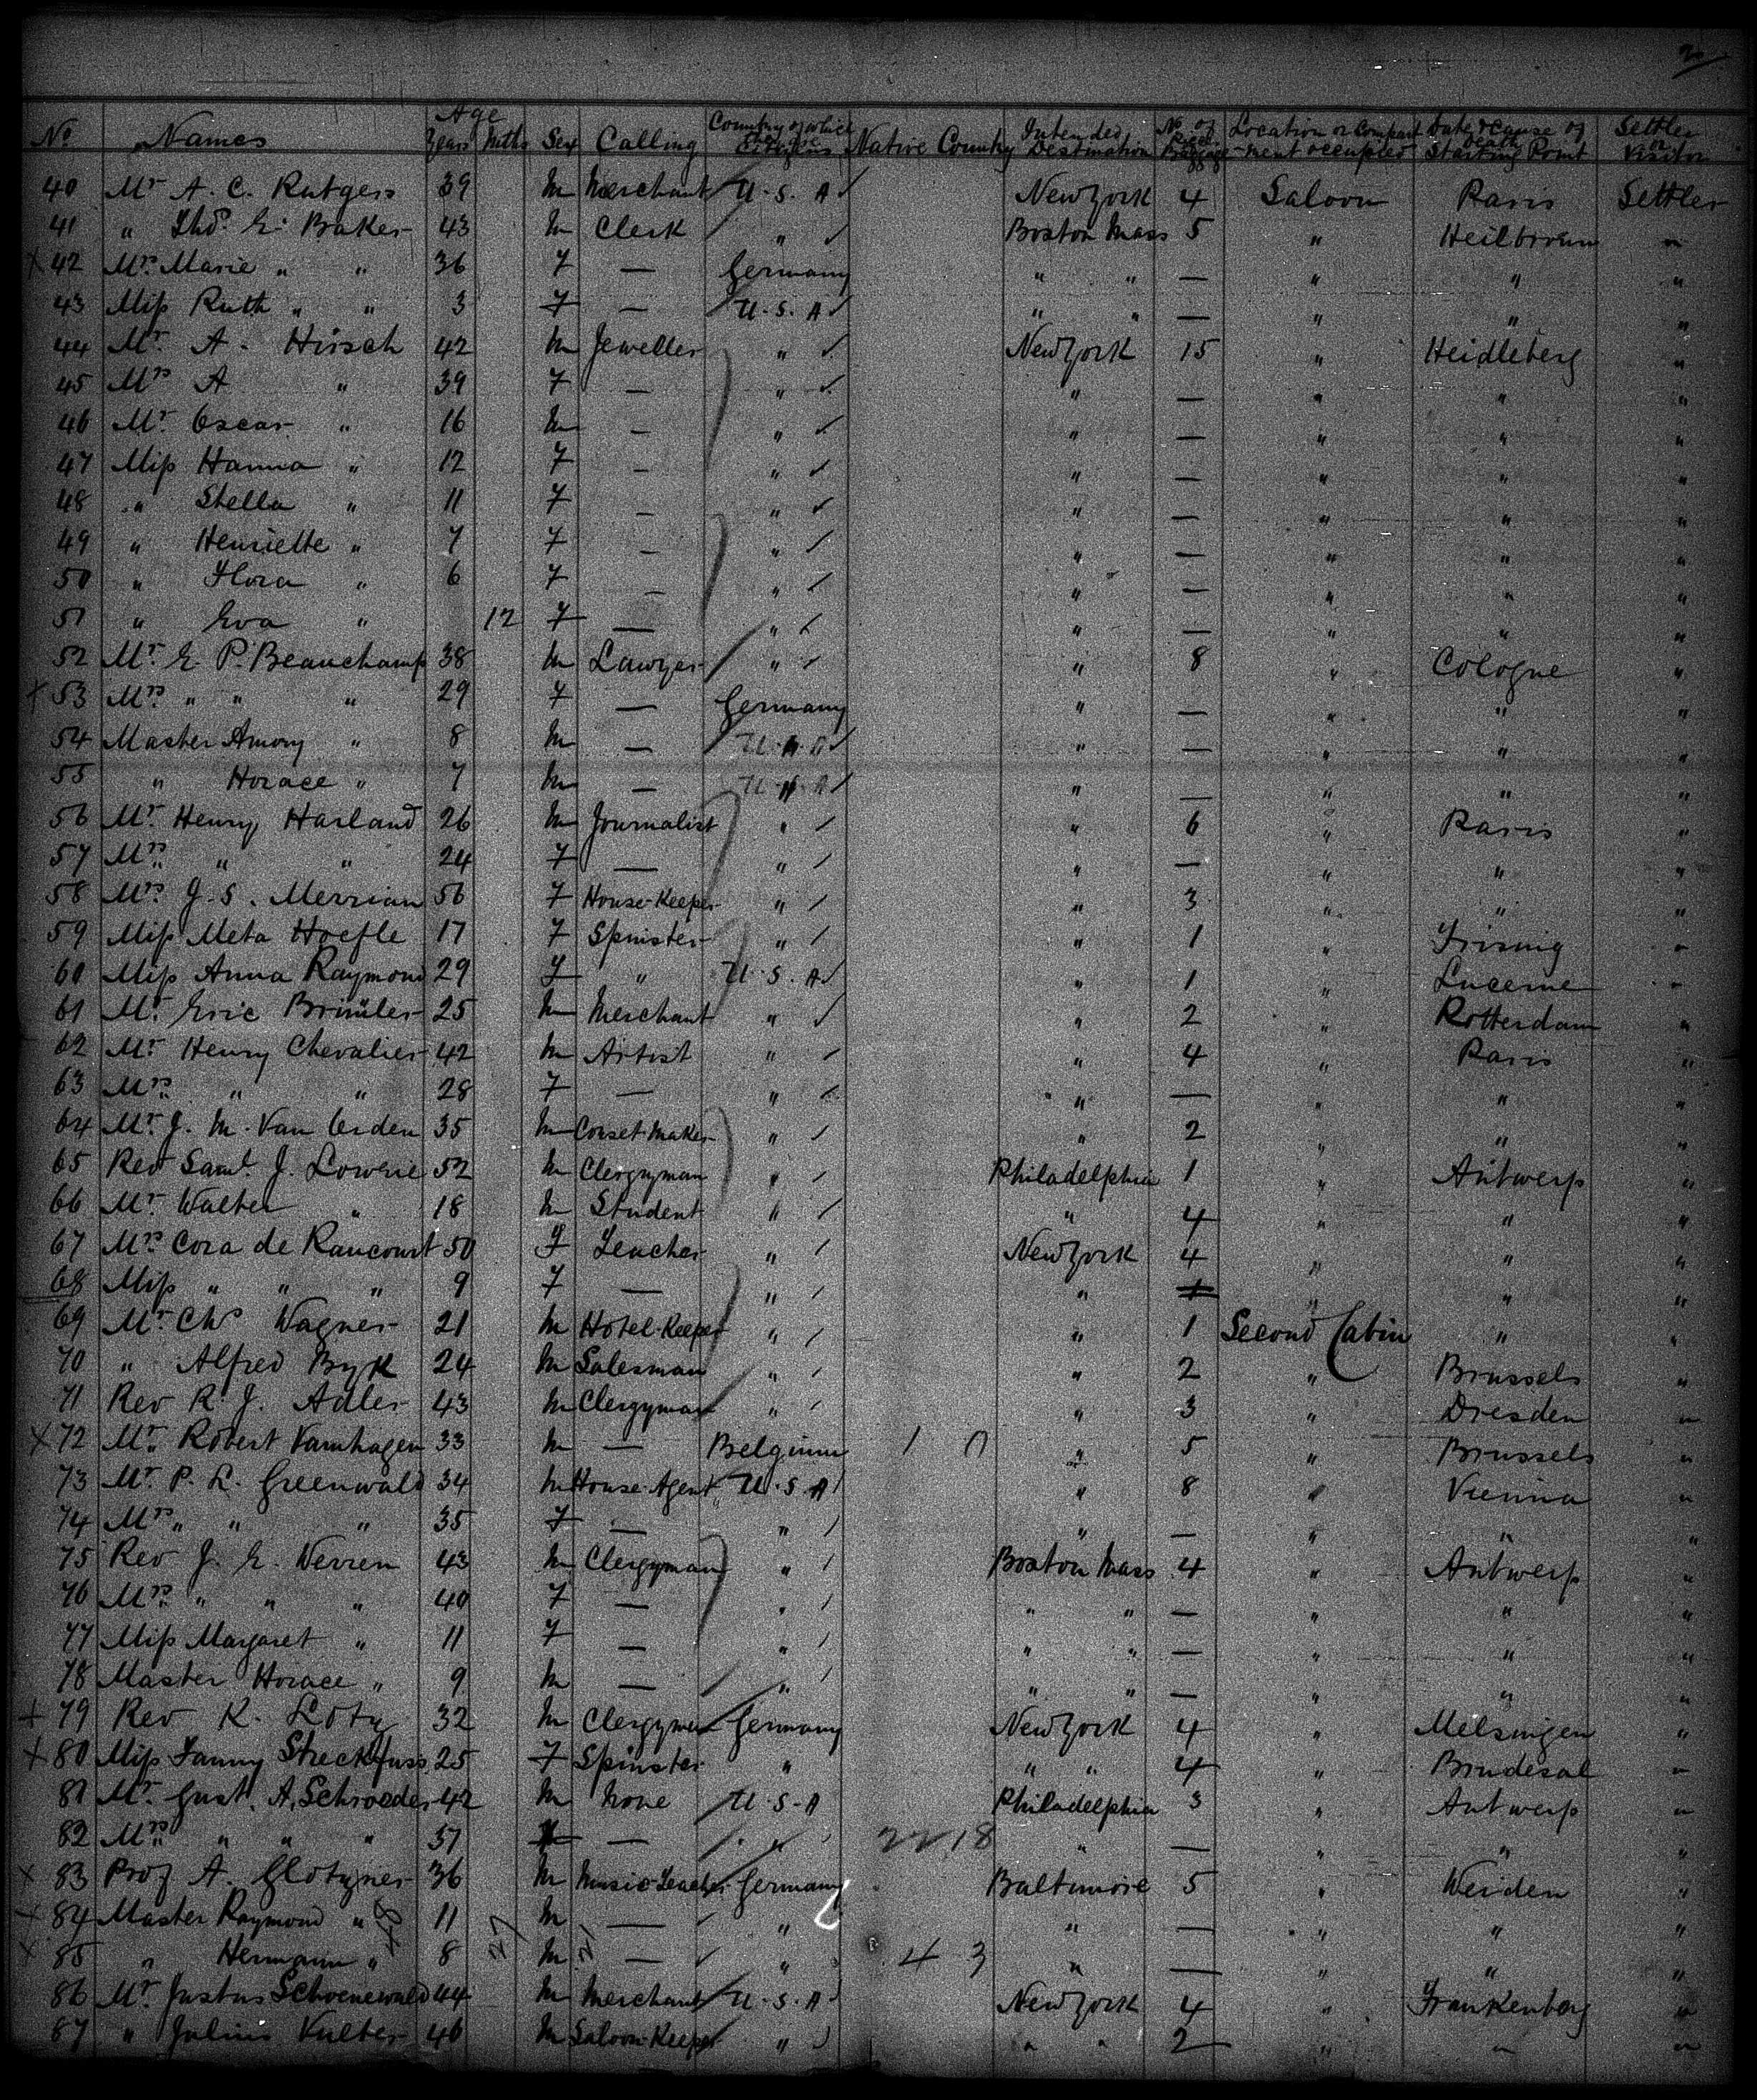 2
No Names Age Years Mths Sex Calling Country of which Citizens Native Country Intended Destination No. of Baggage Location or Compartment occupied Date & Cause of Death Starting Point Settler or Visitor
40 Mr A. C. Rutgers 39 M Merchant U.S.A New York 4 Saloon Paris Settler
41 " Thd. E. Baker 43 M Clerk " Boston Mass 5 " Heilbronn "
X 42 Mrs Marie " " 36 F — Germany " " — " " "
43 Miss Ruth " " 3 F — U.S.A " " — " " "
44 Mr. A. Hirsch 42 M Jeweller " New York 15 " Heidleberg "
45 Mrs A " 39 F — " " — " " "
46 Mr. Oscar " 16 M — " " — " " "
47 Miss Hanna " 12 F — " " — " " "
48 " Stella " 11 F — " " — " " "
49 " Henriette " 7 F — " " — " " "
50 " Flora " 6 F — " " — " " "
51 " Eva " 12 F — " " — " " "
52 Mr. E. P. Beauchamp 38 M Lawyer " " 8 " Cologne "
X 53 Mrs " " " 29 F — Germany " — " " "
54 Master Amory " 8 M — U.S.A " — " " "
55 " Horace " 7 M — U.S.A " — " " "
56 Mr. Henry Harland 26 M Journalist " " 6 " Paris "
57 Mrs " " 24 F — " " — " " "
58 Mrs J. S. Merriam 56 F House-Keeper " " 3 " " "
59 Miss Meta Hoefle 17 F Spinster " " 1 " "
60 Miss Anna Raymond 29 F " U.S.A " 1 " Lucerne "
61 Mr. Eric 25 M Merchant " " 2 " Rotterdam "
62 Mr Henry Chevalier 42 M Artist " " 4 " Paris "
63 Mrs " " 28 F — " " — " " "
64 Mr. J. M. Van Orden 35 M Corset Maker " " 2 " " "
65 Rev Saml. J. Lowrie 52 M Clergyman " Philadelphia 1 " Antwerp "
66 Mr Walter " 18 M Student " " 4 " " "
67 Mrs Cora de Rancourt 50 F Teacher " New York 4 " " "
68 Miss " " " 9 F — " " — " " "
69 Mr. Chs Wagner 21 M Hotel-Keeper " " 1 Second Cabin " "
70 " Alfred Byk 24 M Salesman " " 2 " Brussels "
71 Rev R. J. Adler 43 M Clergyman " " 3 " Dresden "
X 72 Mr. Robert Varnhagen 33 M — Belgium 1 0 " 5 " Brussels "
73 Mr P. L. Greenwald 34 M House-Agent U.S.A " 8 " Vienna "
74 Mrs " " " 35 F — " " — " " "
75 Rev J. E. Werren 43 M Clergyman " Boston Mass 4 " Antwerp "
76 Mrs " " " 40 F — " " " — " " "
77 Miss Margaret " 11 F — " " " — " " "
78 Master Horace " 9 M — " " " — " " "
X 79 Rev K. 32 M Clergyman Germany New York 4 " Melsungen "
X 80 Miss Fanny Streckfuss 25 F Spinster " " " 4 " "
81 Mr. Gust. A. Schroeder 42 M None U.S.A Philadelphia 3 " Antwerp "
82 Mrs " " " 37 F — " 22 18 " — " " "
X 83 Prof A. 36 M Music-Teacher Germany Baltimore 5 " Weiden "
X 84 Master Raymond " 11 M — " " — " " "
X 85 " Hermann " 8 M — " 4 3 " — " " "
86 Mr. Justus Schoenewald 44 M Merchant U.S.A New York 4 " Frankenberg "
87 " Julius Vulter 46 M Saloon-Keeper " " " 2 " " "